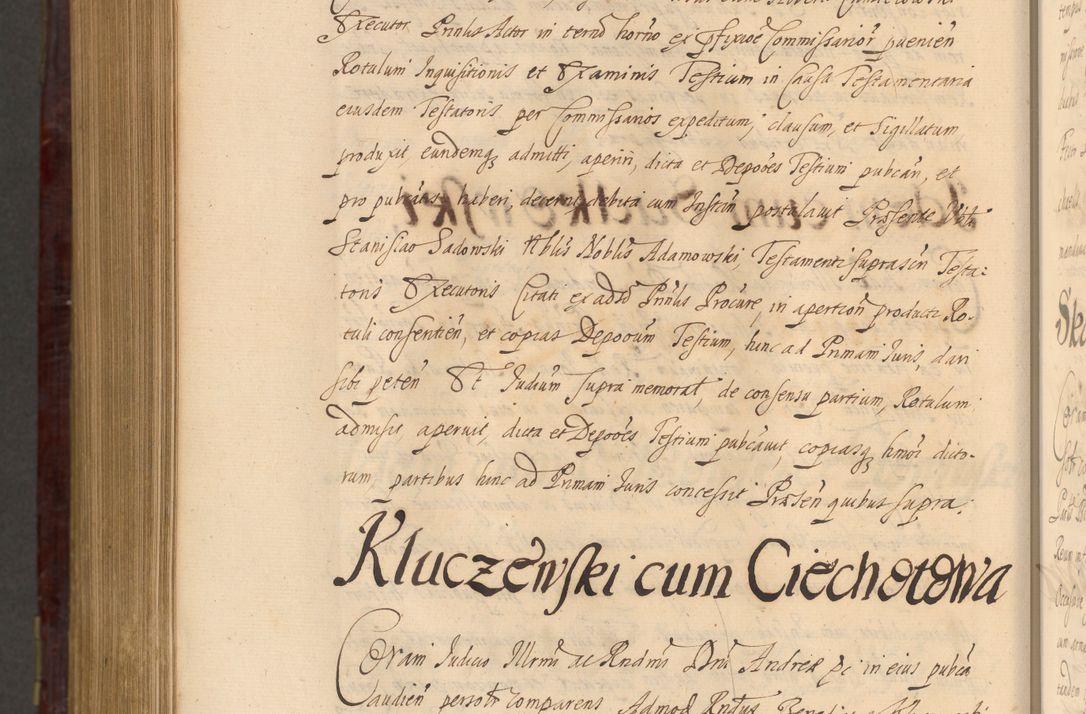 Executor Prinlis Actor in termõ horño ex Pfixioẽ Commissarior pvenien
Rotulum Inquisitionis et Examinis Testium in Causa Testamentaria
eiusdem Testatoris per Commissarios expeditum, clausum, et Sigillatum,
produxit, eundemq admitti, aperiri, dicta et Depoões Testium pubcari, et
pro pubcatis haberi, decerni debita cum Instan postulavit Præsente
Stanislao Sadowski Nblis Adamowski, Testamenti suprascñ Testa:
toris Executoris Citati ex adso Prinlis Procure, in aperticon producti Ro-
tuli consentien, et copias Depoõum Testium, hinc ad Primam Iuris, dari
sibi peten Et Iudium supra memorat, de consensu partium, Rotulum
admisit, aperuit, dicta et Depoões Testium pubcavit, copiasq hmõi dicto-
rum, partibus hinc ad Primam Iuris concessit Præsen quibus supra.
Kluczewski cum Ciechotowa
Coram Iudicio Illrmi ac Rndmi Dni Andreæ &c in eius pubca
Audien personlr comparens Admod Rndus